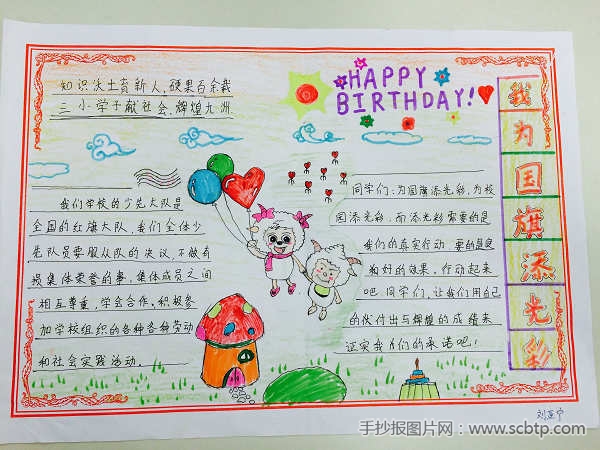 知识沃土育新人,硕果百余载
三小学子献社会,辉煌九洲
HAPPY
BIRTHDAY!
我们学校的少先大队是
全国的红旗大队,我们全体少
先队员要服从队的决议,不做有
损集体荣誉的事,集体成员之间
相互尊重,学会合作,积极参
加学校组织的各种各种劳动
和社会实践活动。
同学们:为国旗添光彩,为校
园添光彩,而添光彩需要的是
我们的真实行动,要的是
好的效果,行动起来
吧,同学们,让我们用自己
的付出与辉煌的成绩来
证实我们的承诺吧!
我为国旗添光彩
刘宁
手抄报图片网:www.scbtp.com